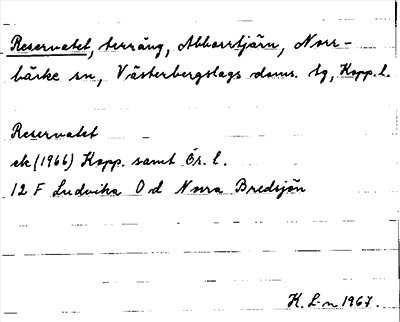 Reservatet, terräng, Abborrtjärn, Norr-
bärke sn, Västerbergslags doms. tg, Kopp. l.
Reservatet
ek (1966) Kopp. samt Ör. l.
12 F Ludvika 0 d Norra Bredsjön
K. L-n 1967.